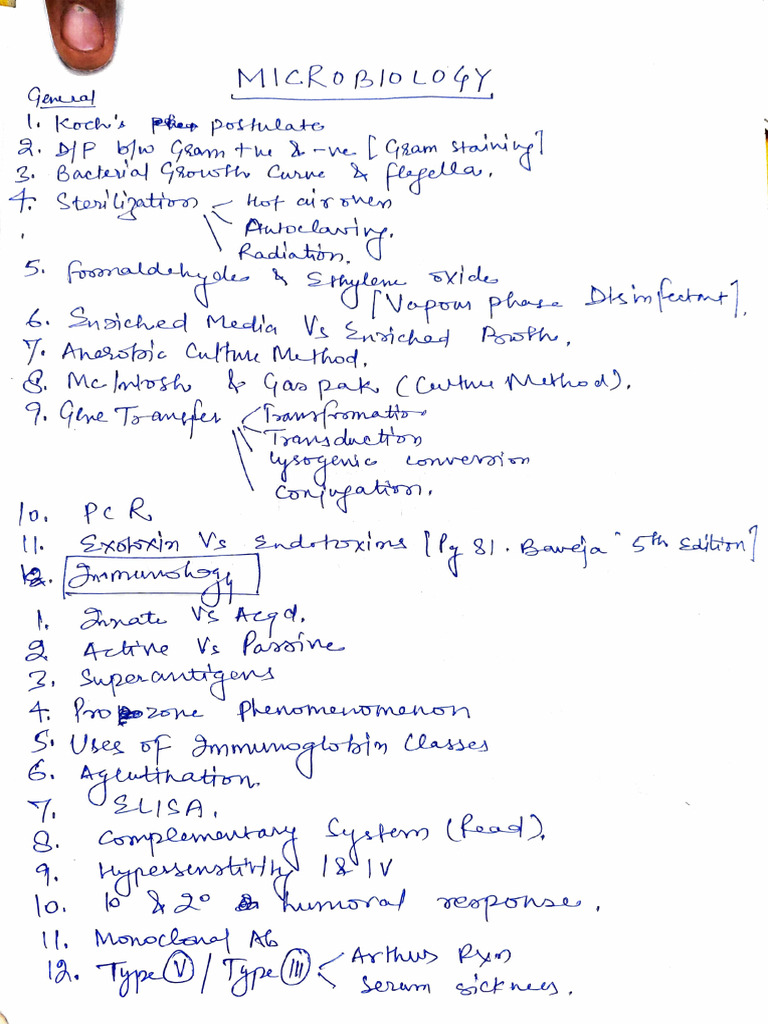 MICROBIOLOGY
General
1. Koch's postulate
2. D/P b/w Gram +ve & -ve [Gram staining]
3. Bacterial Growth Curve & flagella.
4. Sterilization Hot air oven
Autoclaving.
Radiation.
5. formaldehyde & Ethylene oxide
[Vapour phase Disinfectant].
6. Enriched Media Vs Enriched Broth.
7. Anerobic Culture Method.
8. McIntosh & Gaspak (Culture Method).
9. Gene Transfer Transfromation
Transduction
Lysogenic conversion
Conjugation.
10. PCR
11. Exotoxin Vs Endotoxins [Pg 81. Baveja 5th Edition]
12. Immunology
1. Innate Vs Acqd.
2 Active Vs Passive
3. Superantigens
4. Prozone Phenomenomenon
5. Uses of Immunoglobin Classes
6. Aglutination.
7. ELISA.
8. Complementary System (Read).
9. Hypersenstivity I & IV
10. 1° & 2° humoral response.
11. Monoclonal Ab
12. Type V / Type III Arthus Rxn
Serum sickness.